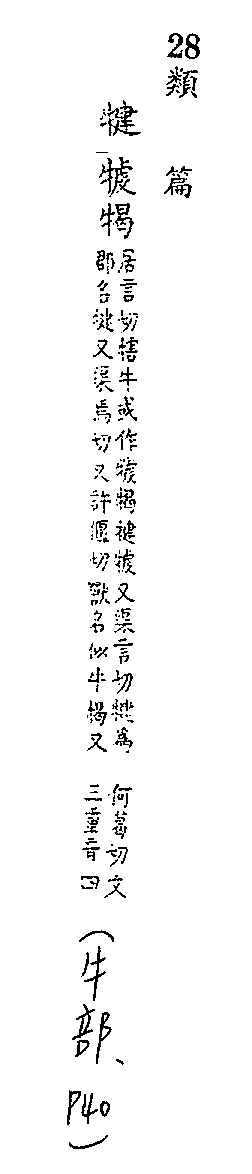 28類篇
犍㹔𤚊
居言切犗牛或作㹔𤚊犍㹔又渠言切犍為
郡名犍又渠焉切又許偃切獸名似牛𤚊又
何葛切文
三重音四
(牛部、P40)